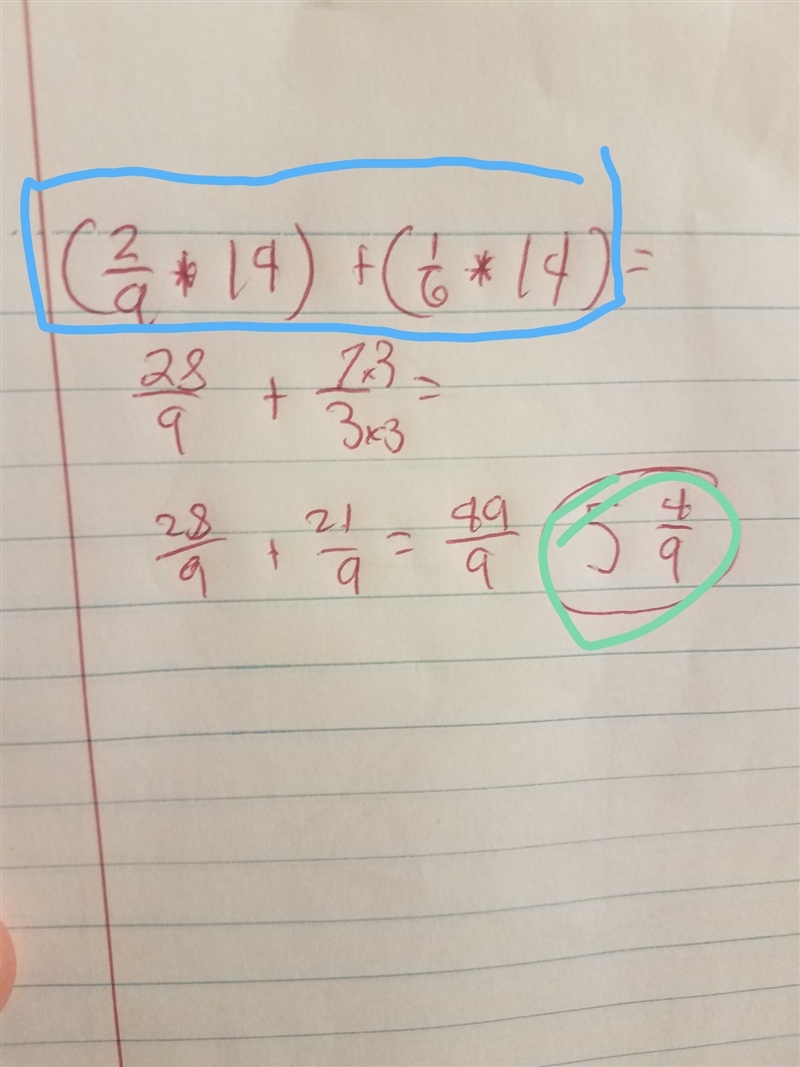 (2/9 * 14) + (1/6 * 14) =
28/9 + 7x3/3x3 =
28/9 + 21/9 = 49/9 5 4/9